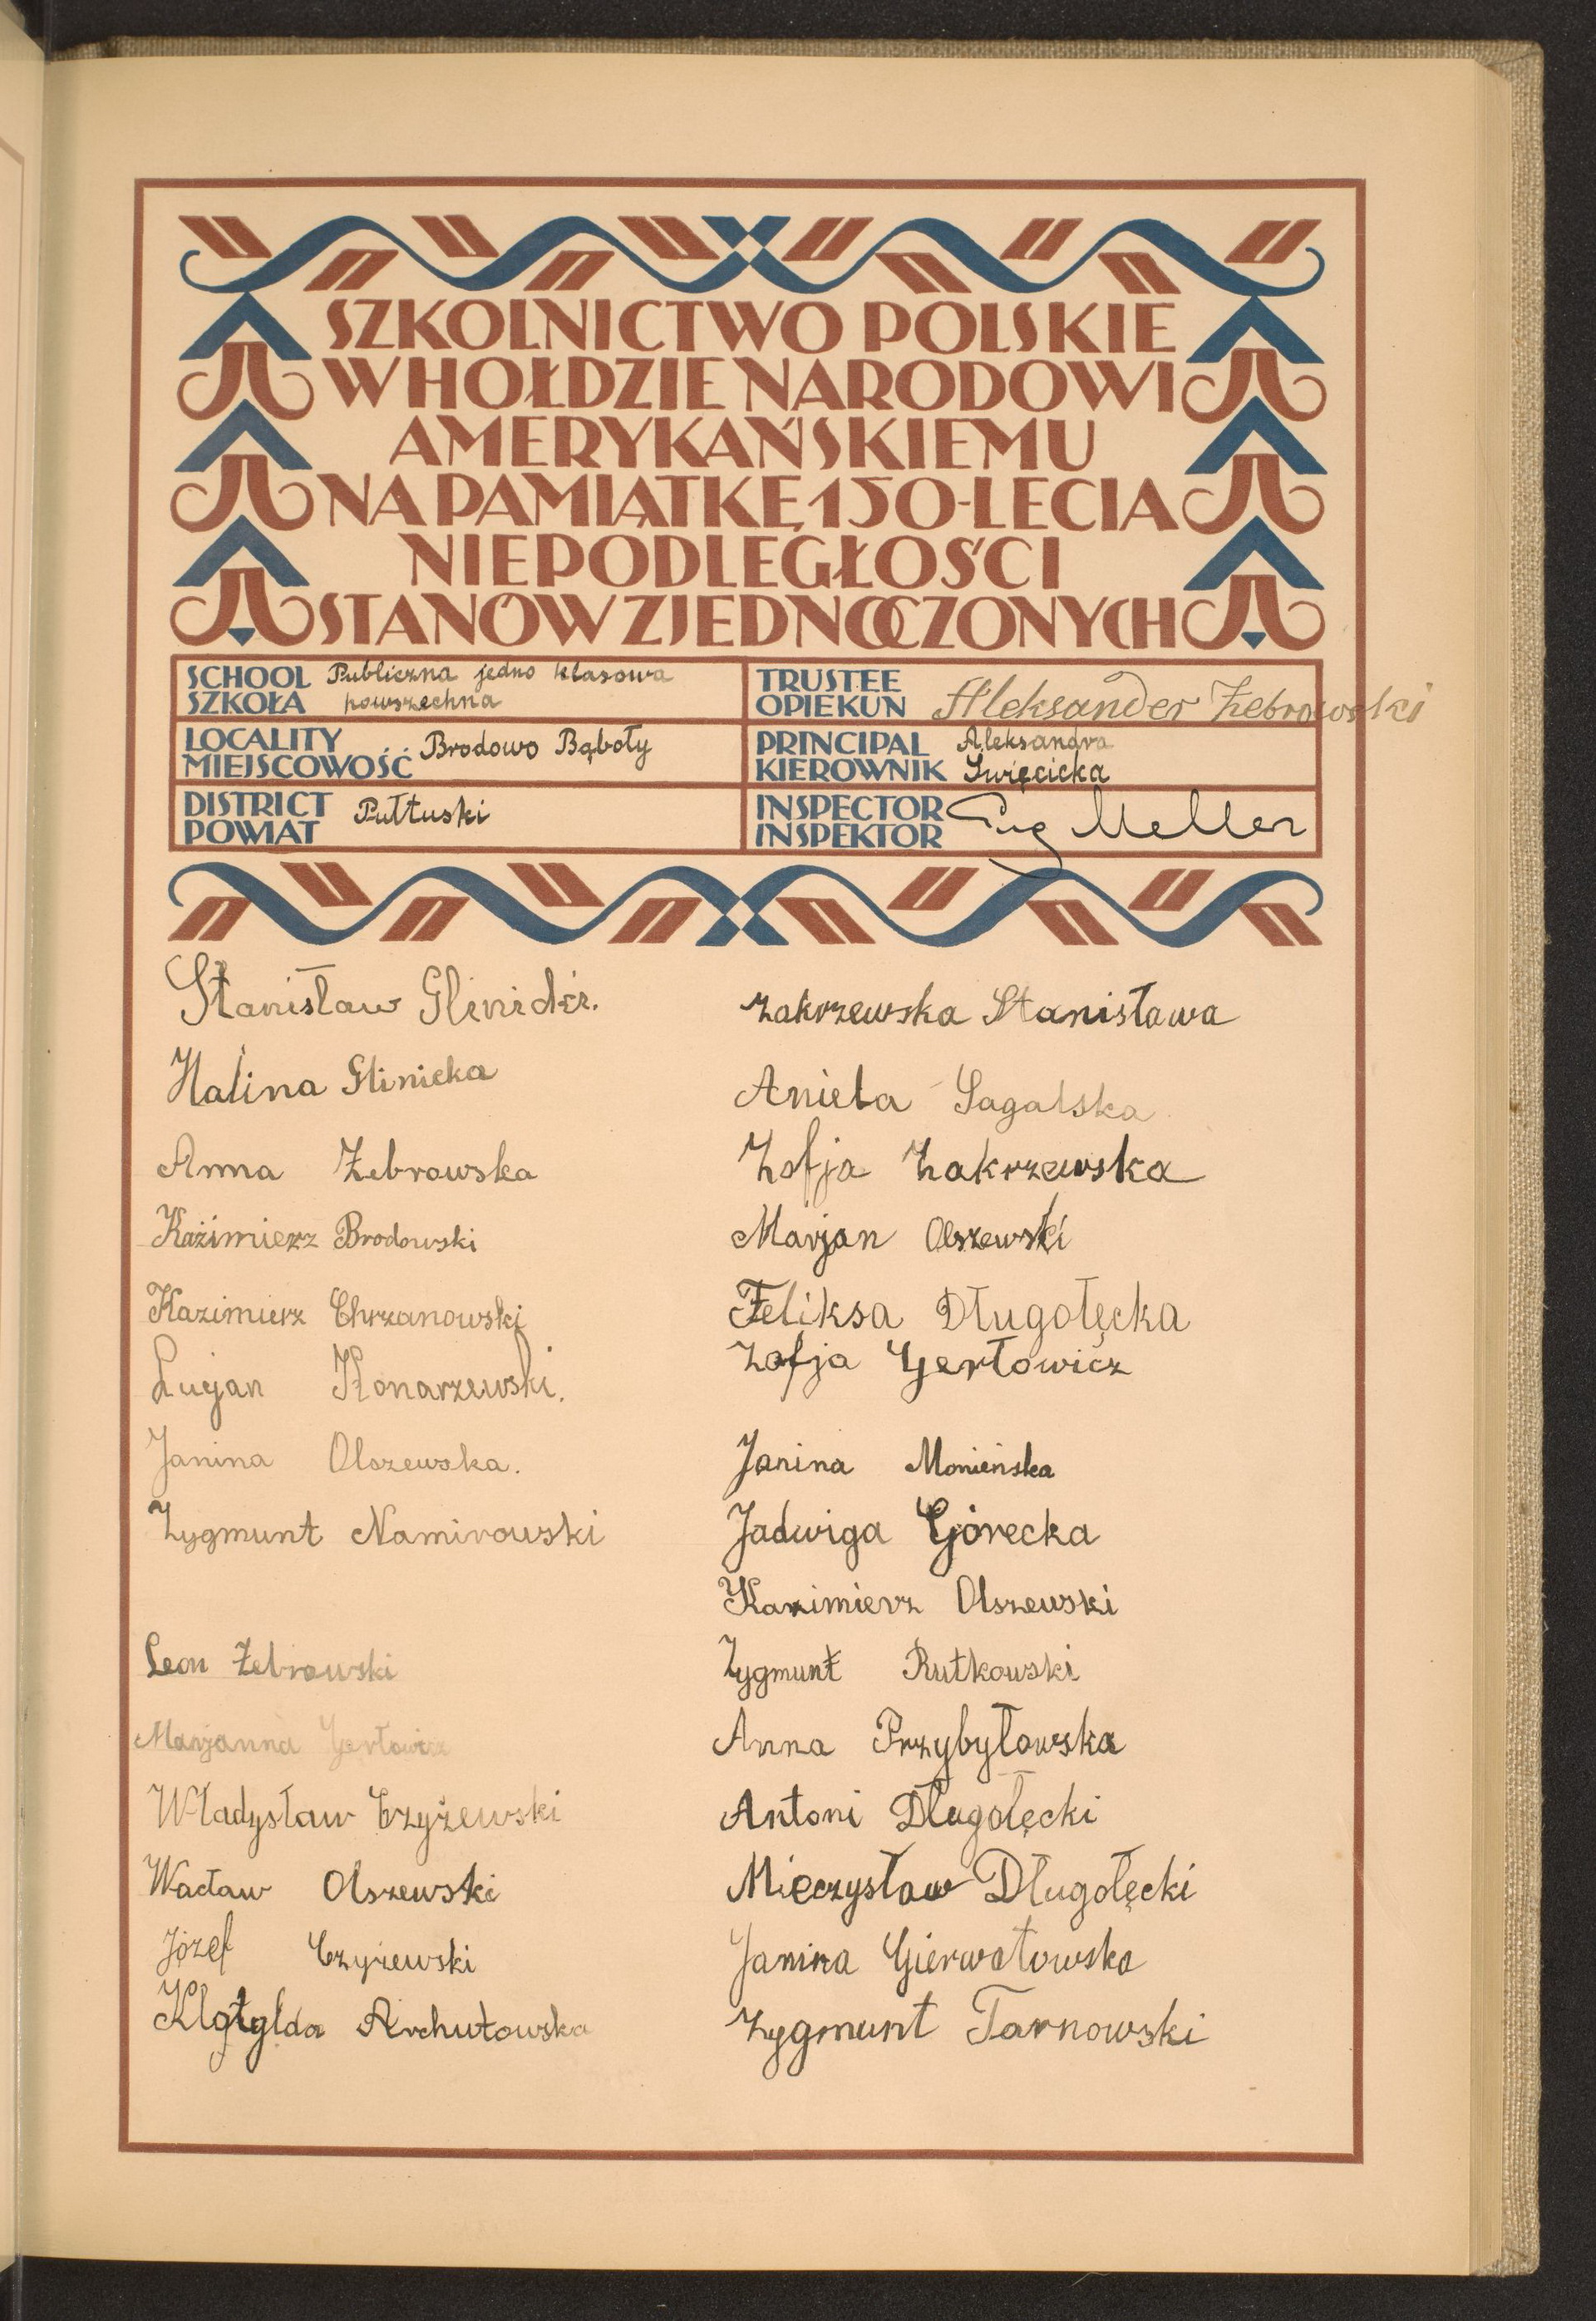 SZKOLNICTWO POLSKIE
W HOŁDZIE NARODOWI
AMERYKAŃSKIEMU
NA PAMIĄTKĘ 150-LECIA
NIEPODLEGŁOŚCI
STANÓW ZJEDNOCZONYCH
SCHOOL
SZKOŁA
Publiczna jedno klasowa
powszechna
TRUSTEE
OPIEKUN
Aleksander Żebrowski
LOCALITY
MIEJSCOWOŚĆ
Brodowo Bąboły
PRINCIPAL
KIEROWNIK
Aleksandra
Święcicka
DISTRICT
POWIAT
Pułtuski
INSPECTOR
INSPEKTOR
Eug Meller
Stanisław
Halina Glinicka
Anna Żebrowska
Kaźimierz Brodowski
Kazimierz Chrzanowski
Lucjan Konarzewski.
Janina Olszewska.
Zygmunt Namirowski
Leon Żebrowski
Marjanna Gertowicz
Władysław Czyżewski
Wacław Olszewski
Józef Czyżewski
Klotylda Archutowska
Zakrzewska Stanisława
Aniela Sagalska
Zofja Zakrzewska
Marjan Olszewski
Feliksa Długołęcka
Zofja Gertowicz
Janina Monieńska
Jadwiga Górecka
Kazimierz Olszewski
Zygmunt Rutkowski
Anna Przybyłowska
Antoni Długołęcki
Mieczysław Długołęcki
Janina Gierwatowska
Zygmunt Tarnowski